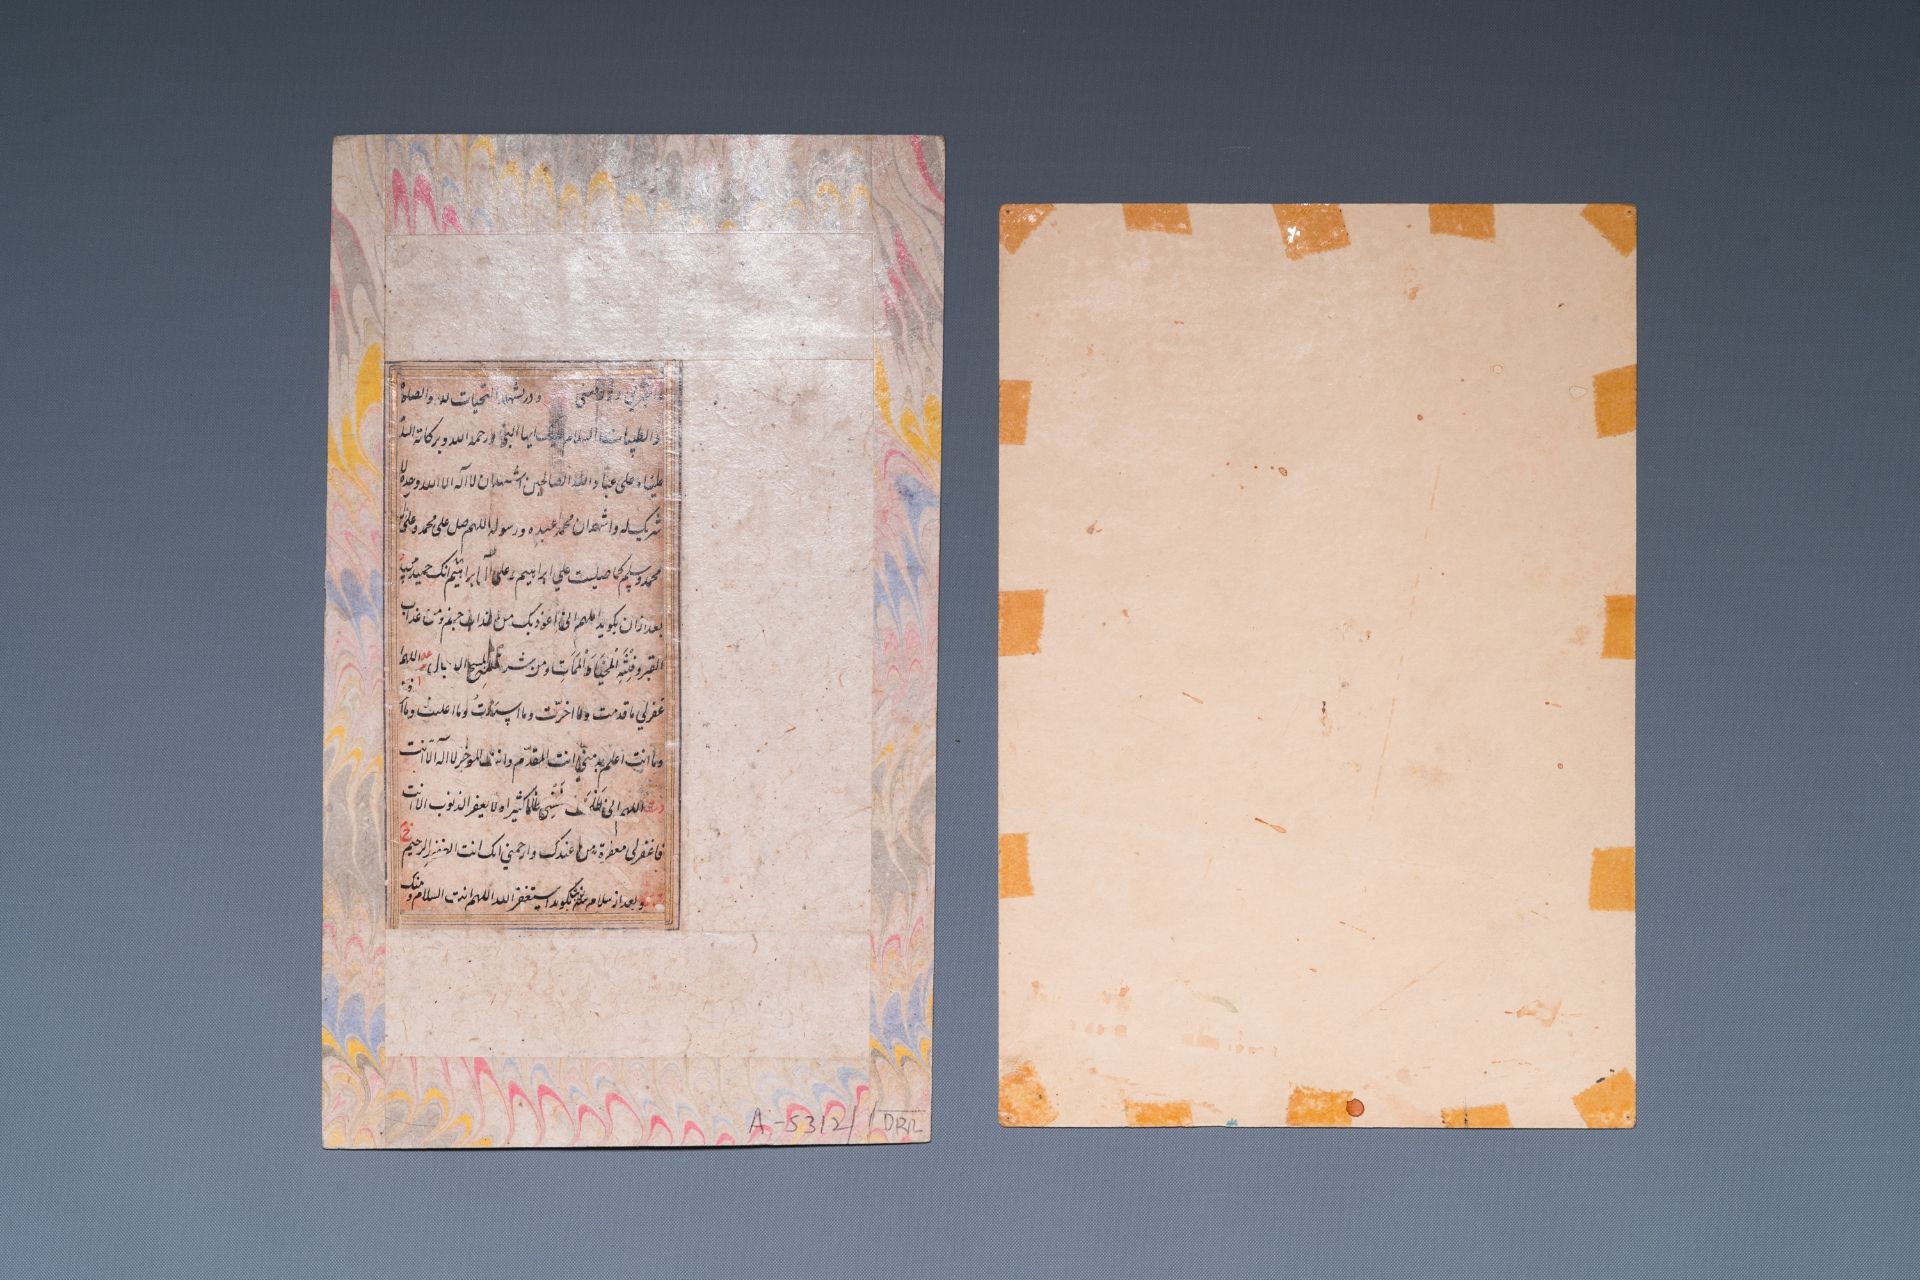 و در تشهد التحیات لله والصلوة
والطیبات السلام علیک ایها النبی ورحمة الله وبرکاته السلام
علینا و علی عباد الله الصالحین اشهد ان لا اله الا الله وحده لا
شریک له و اشهد ان محمدا عبده و رسوله اللهم صل علی محمد و علی
محمد وسلم کما صلیت علی ابراهیم و علی آل ابراهیم انک حمید مجید
بعد ازان بگوید اللهم انی اعوذ بک من عذاب جهنم ومن عذاب
القبر وفتنة المحیا والممات ومن شر المسیح اللهم
غفرلی ما قدمت وما اخرت وما اسررت وما اعلنت وما
وما انت اعلم به منی انت المقدم وانت الموخر لا اله الا انت
اللهم انی ظلمت نفسی ظلما کثیرا و لا یغفر الذنوب الا انت
فاغفرلی مغفرة من عندک وارحمنی انک انت الغفور الرحیم
و بعد از سلام بگوید استغفر الله اللهم انت السلام و منک
A-5312/